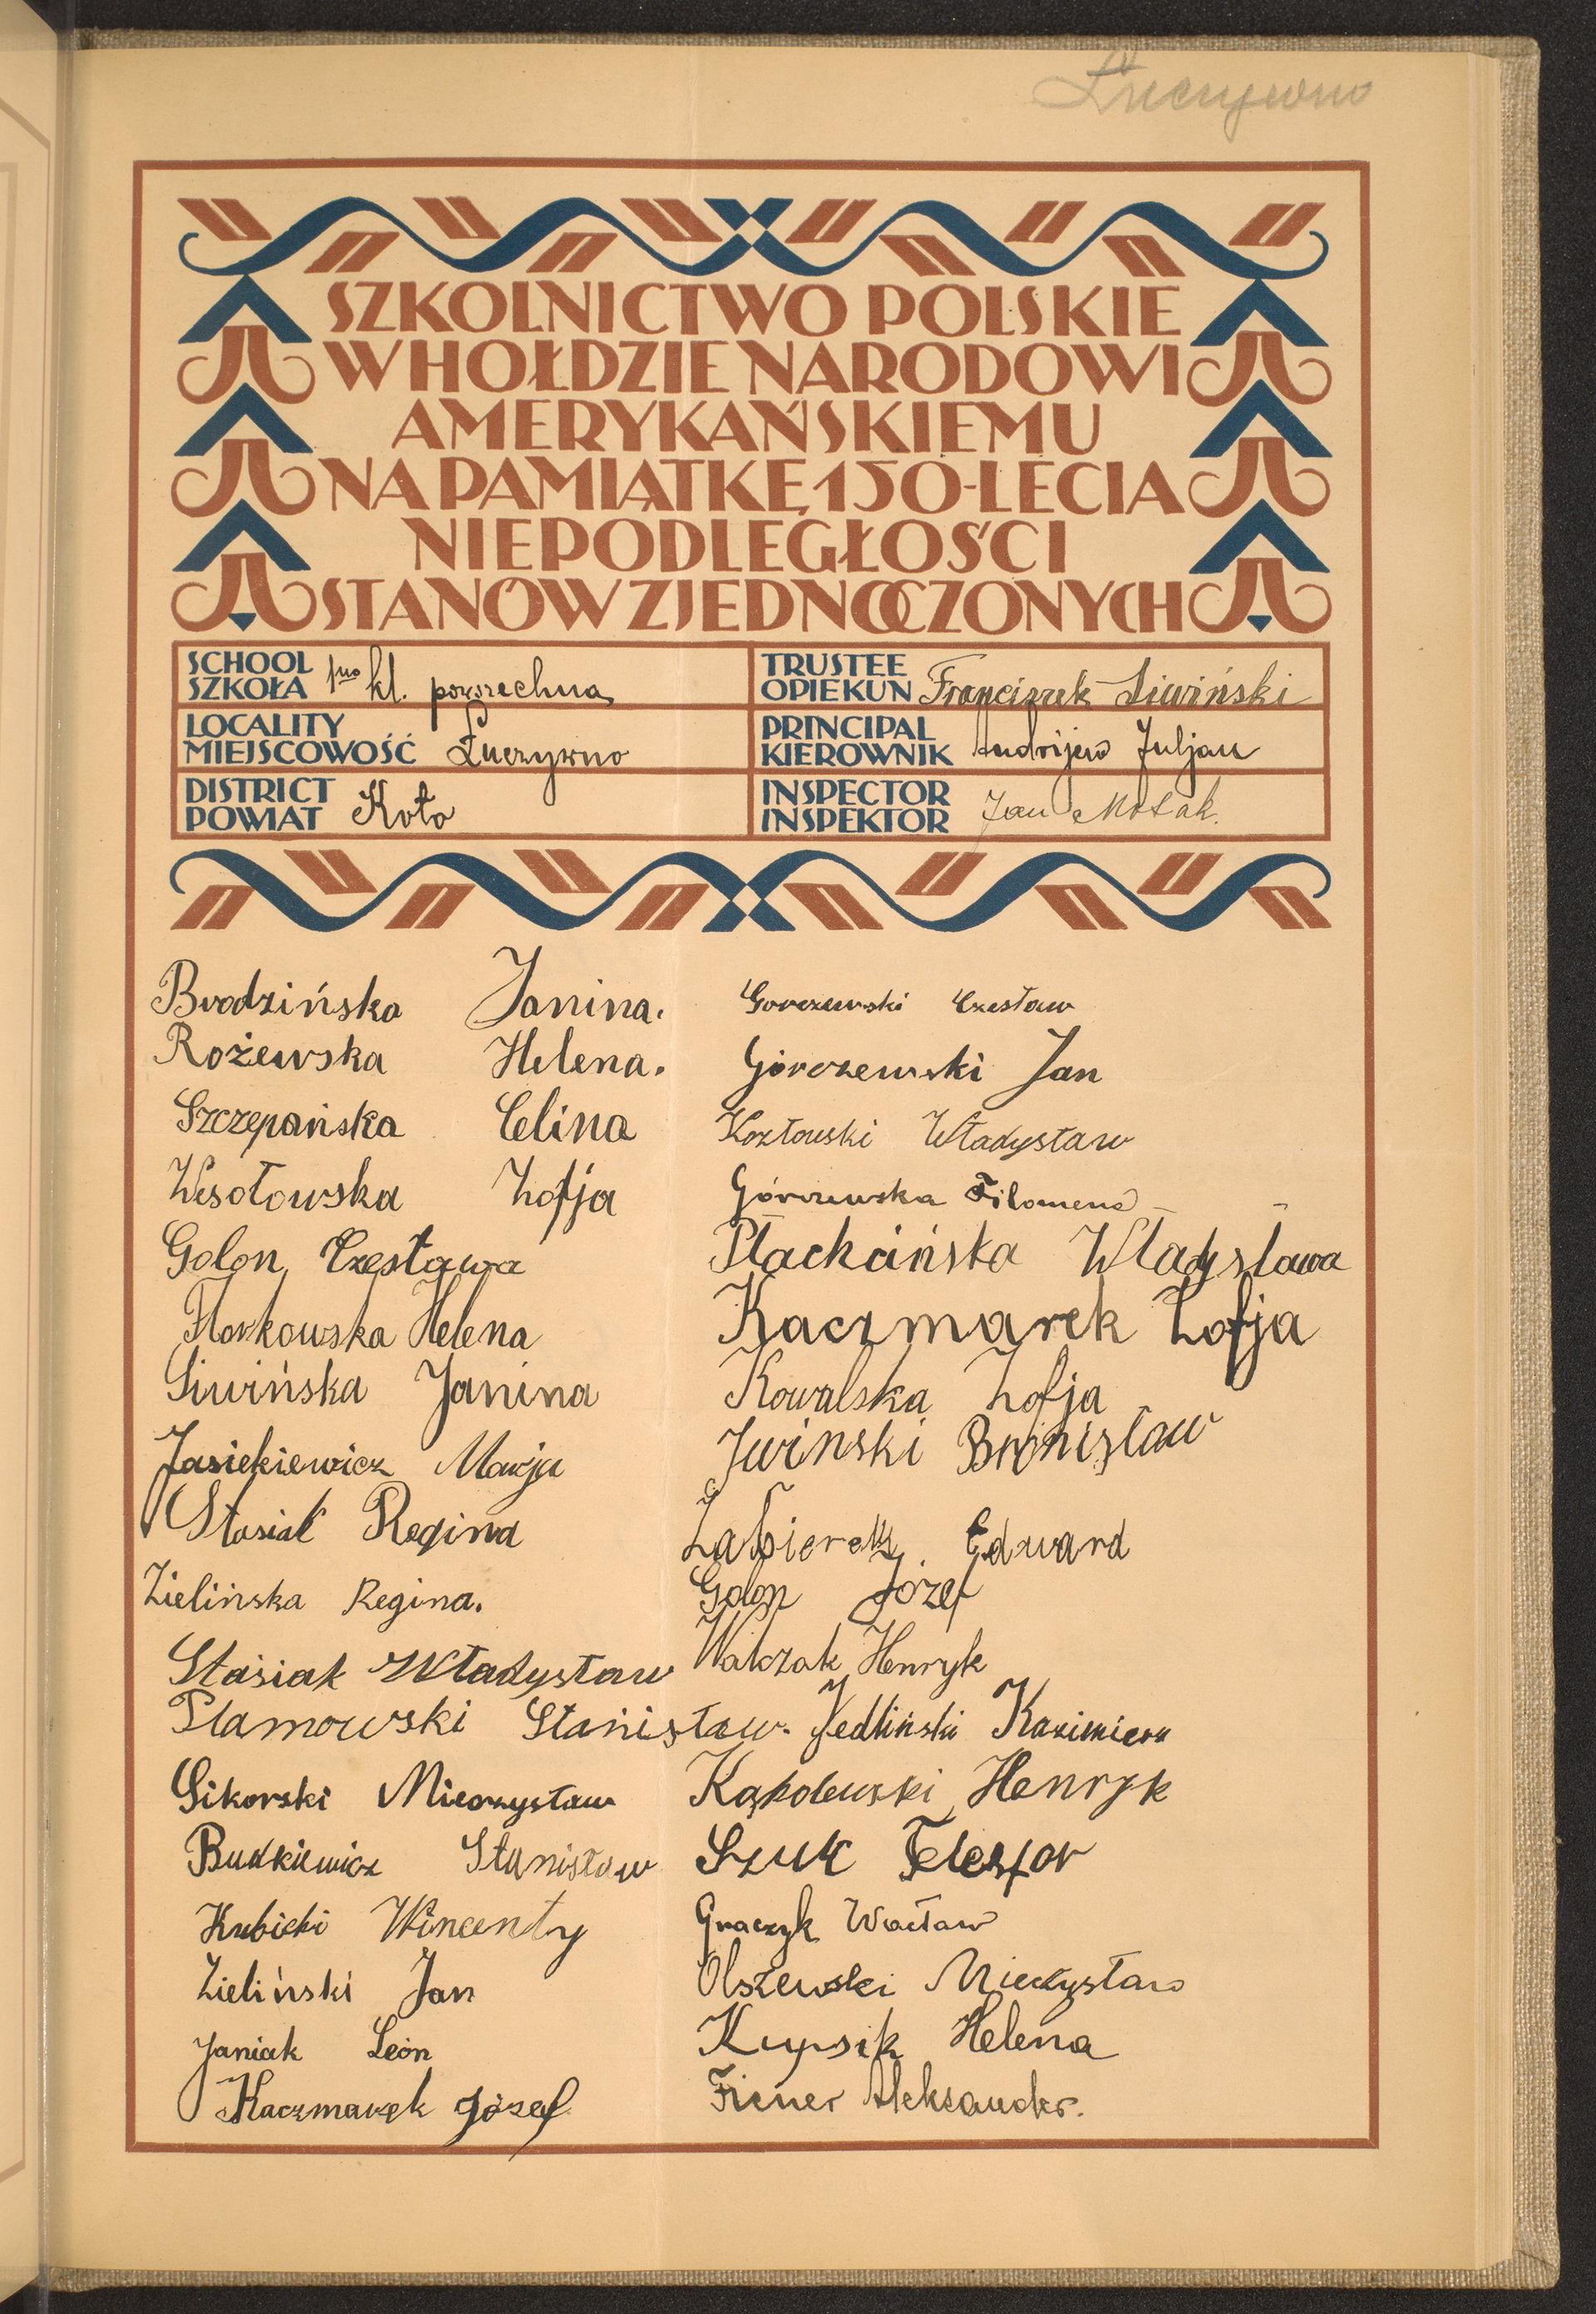 Łuczywno
SZKOLNICTWO POLSKIE
W HOŁDZIE NARODOWI
AMERYKAŃSKIEMU
NA PAMIĄTKĘ 150-LECIA
NIEPODLEGŁOŚCI
STANÓW ZJEDNOCZONYCH
SCHOOL
SZKOŁA 1no kl. powszechna
LOCALITY
MIEJSCOWOŚĆ Łuczywno
DISTRICT
POWIAT Koło
TRUSTEE
OPIEKUN Franciszek Siwiński
PRINCIPAL
KIEROWNIK Andrijew Juljan
INSPECTOR
INSPEKTOR Jan
Brodzińska Janina.
Rożewska Helena.
Szczepańska Celina
Wesołowska Zofja
Golon Czesława
Florkowska Helena
Siwińska Janina
Jasiekiewicz Marja
Stasiak Regina
Zielińska Regina.
Stasiak Władysław
Plamowski Stanisław.
Sikorski Mieczysław
Budkiewicz Stanisław
Kubicki Wincenty
Zieliński Jan
Janiak Leon
Kaczmarek Józef
Gorczewski Czesław
Górczewski Jan
Kozłowski Władysław
Górczewska Filomena
Płachcińska Władysława
Kaczmarek Zofja
Kowalska Zofja
Jwinski Bronisław
Edward
Golon Józef
Walczak Henryk
Jedliński Kazimierz
Kąkolewski Henryk
Szuk Telesfor
Graczyk Wacław
Olszewski Mieczysław
Kupsik Helena
Fiener Aleksander.